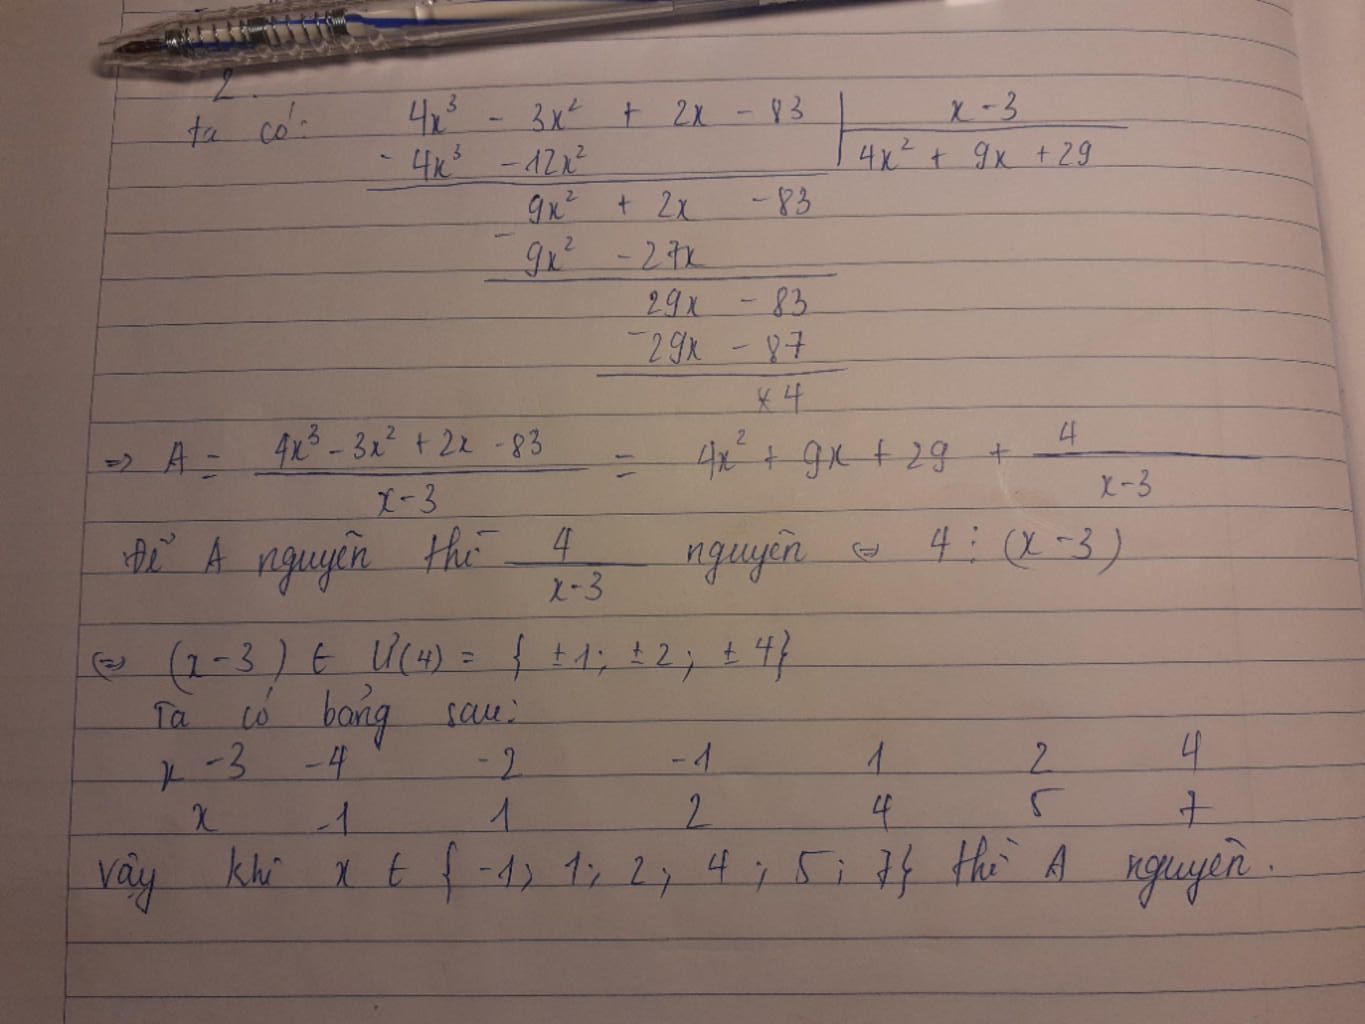 2.
Ta có: 4x³ - 3x² + 2x - 83 | x - 3
- 4x³ - 12x² | 4x² + 9x + 29
9x² + 2x - 83
- 9x² - 27x
29x - 83
- 29x - 87
4
=> A = (4x³ - 3x² + 2x - 83)/(x - 3) = 4x² + 9x + 29 + 4/(x - 3)
Để A nguyên thì 4/(x - 3) nguyên <=> 4 ⋮ (x - 3)
<=> (x - 3) ∈ Ư(4) = { ±1; ±2; ±4}
Ta có bảng sau:
x - 3 -4 -2 -1 1 2 4
x -1 1 2 4 5 7
Vậy khi x ∈ { -1; 1; 2; 4; 5; 7} thì A nguyên.